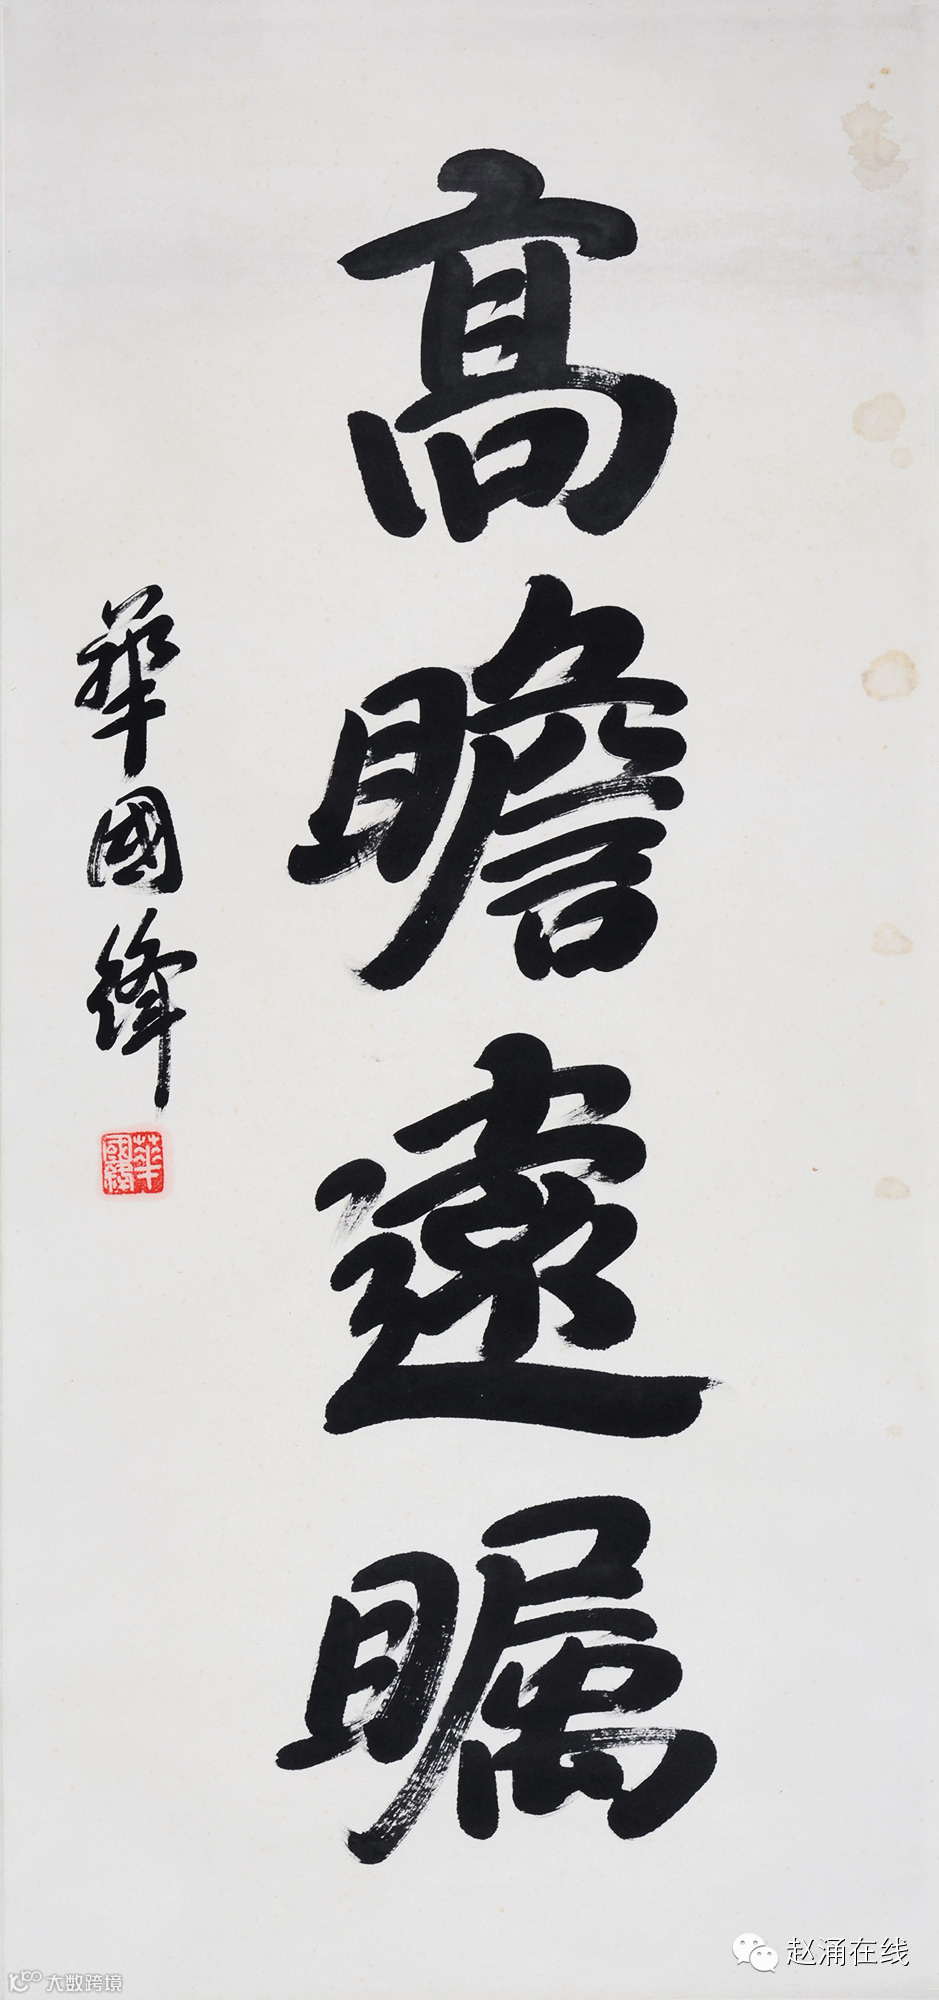 高瞻遠瞩
華國鋒
華國鋒
赵涌在线
大数跨境